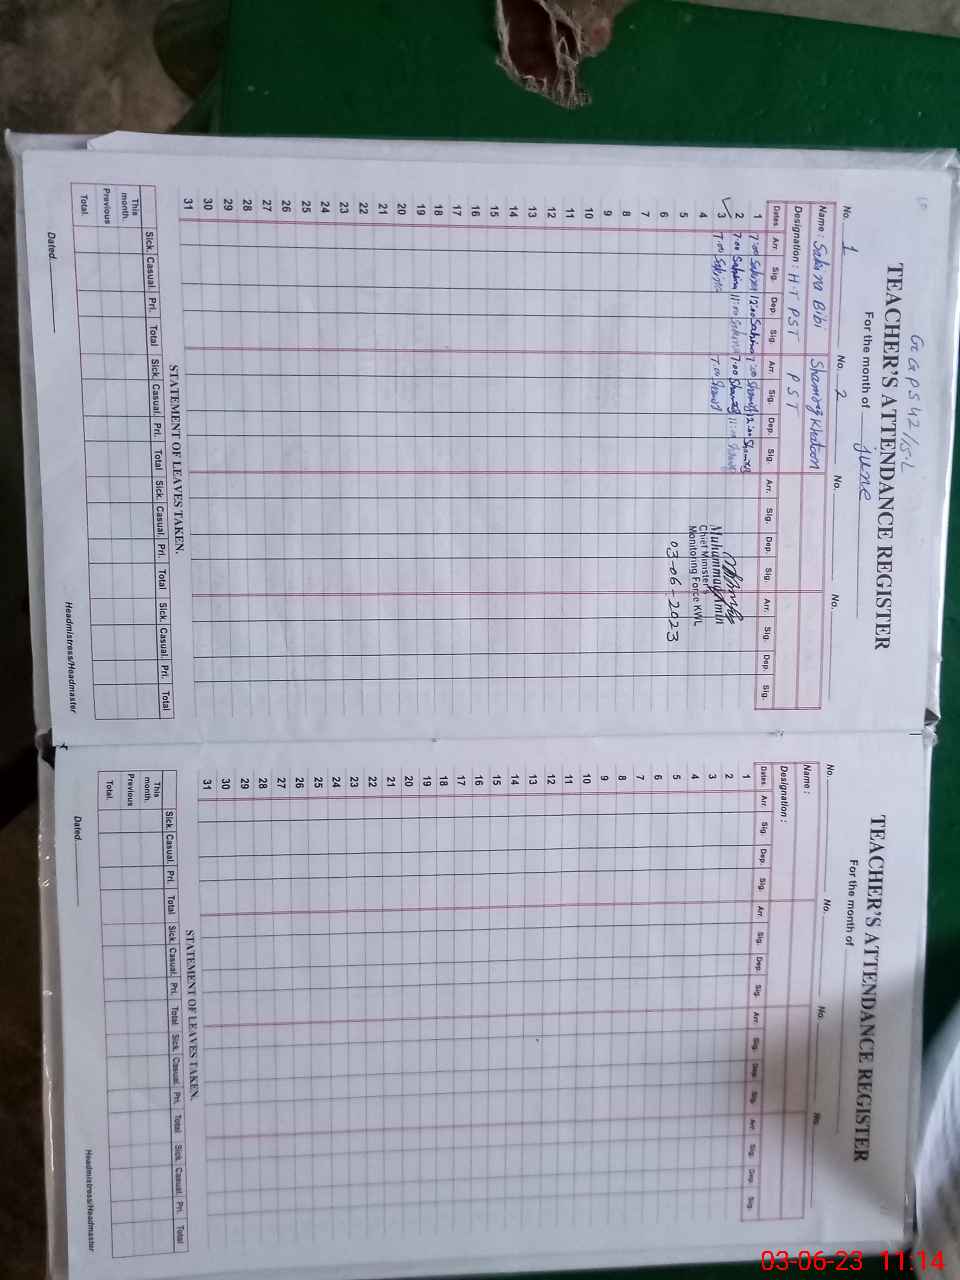 GGPS 42/15-L
TEACHER'S ATTENDANCE REGISTER
For the month of june
No. 1 No. 2 No. No.
Name : Sakina Bibi Shamng Khatoon
Designation : H.T PST PST
Dates Arr. Sig. Dep. Sig. Arr. Sig. Dep. Sig. Arr. Sig. Dep. Sig. Arr. Sig. Dep. Sig.
1 7:00 Sakina 12:00 Sakina 7:00 12:00
2 7:00 Sakina 11:00 Sakina 7:00 11:00
3 7:00 Sakina 7:00
4
5
6
7
8
9
10
11
12
13
14
15
16
17
18
19
20
21
22
23
24
25
26
27
28
29
30
31
Muhammad Amin
Chief Minister's
Monitoring Force KWL
03-06-2023
STATEMENT OF LEAVES TAKEN.
Sick. Casual. Pri. Total Sick. Casual. Pri. Total Sick. Casual. Pri. Total Sick. Casual. Pri. Total
This month.
Previous
Total.
Dated.
Headmistress/Headmaster
TEACHER'S ATTENDANCE REGISTER
For the month of
No. No. No. No.
Name :
Designation :
Dates Arr. Sig. Dep. Sig. Arr. Sig. Dep. Sig. Arr. Sig. Dep. Sig. Arr. Sig. Dep. Sig.
1
2
3
4
5
6
7
8
9
10
11
12
13
14
15
16
17
18
19
20
21
22
23
24
25
26
27
28
29
30
31
STATEMENT OF LEAVES TAKEN.
Sick. Casual. Pri. Total Sick. Casual. Pri. Total Sick. Casual. Pri. Total Sick. Casual. Pri. Total
This month.
Previous
Total.
Dated.
Headmistress/Headmaster
03-06-23 11:14